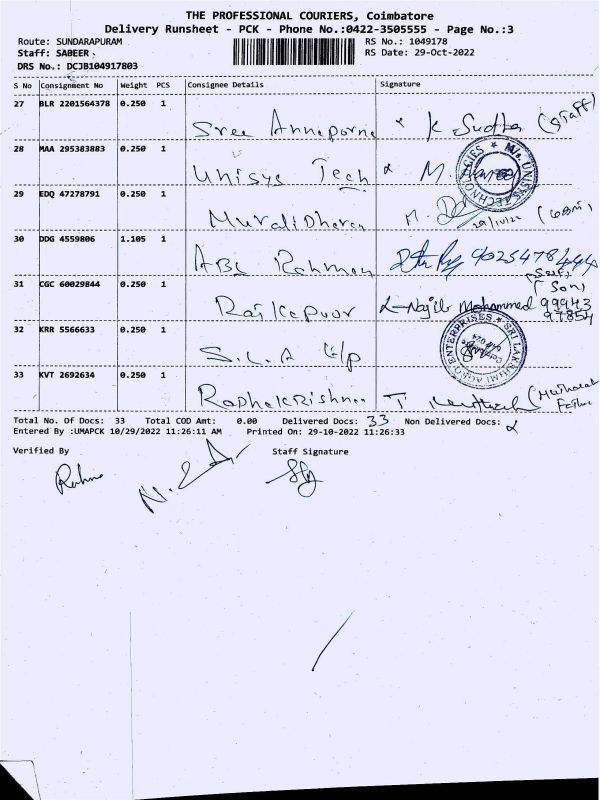 THE PROFESSIONAL COURIERS, Coimbatore
Delivery Runsheet - PCK - Phone No.:0422-3505555 - Page No.:3
Route: SUNDARAPURAM
RS No.: 1049178
Staff: SABEER
RS Date: 29-Oct-2022
DRS No.: DCJB104917803
S No Consignment No Weight PCS Consignee Details Signature
27 BLR 2201564378 0.250 1 Sree Annaporna K Sudha (Staff)
28 MAA 295383883 0.250 1 Unisys Tech M.
M/s. UNISYS TECHNOLOGIES
29 EDQ 47278791 0.250 1 MuraliDharan M.
29/10/22
30 DDG 4559806 1.105 1 ABL Rahman 9025478444
Self
31 CGC 60029844 0.250 1 Raj Kapoor Najib Mohammed 99943
(Son) 97854
32 KRR 5566633 0.250 1 S.L.A
SRI LAKSHMI AGRO ENTERPRISES
33 KVT 2692634 0.250 1 Radhakrishnan T
Total No. Of Docs: 33 Total COD Amt: 0.00 Delivered Docs: 33 Non Delivered Docs:
Entered By :UMAPCK 10/29/2022 11:26:11 AM Printed On: 29-10-2022 11:26:33
Verified By Staff Signature